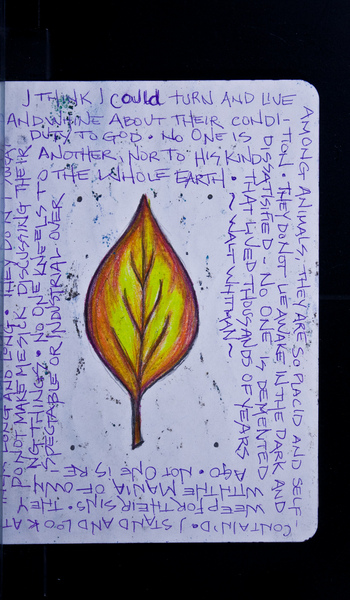 I THINK I COULD TURN AND LIVE
AMONG ANIMALS, THEY ARE SO PLACID AND SELF-
CONTAIN'D. I STAND AND LOOK AT
LONG AND LONG. THEY DON'T
AND WHINE ABOUT THEIR CONDI-
TION. THEY DO NOT LIE AWAKE IN THE DARK AND
WEEP FOR THEIR SINS. THEY
DO NOT MAKE ME SICK DISCUSSING THEIR
DUTY TO GOD. NO ONE IS
DISSATISFIED - NO ONE IS DEMENTED
WITH THE MANIA OF OWNI
NG THINGS. NO ONE KNEELS TO
ANOTHER, NOR TO HIS KIND
THAT LIVED THOUSANDS OF YEARS
AGO. NOT ONE IS RE
SPECTABLE OR INDUSTRIAL OVER
THE WHOLE EARTH.
~ WALT WHITMAN ~